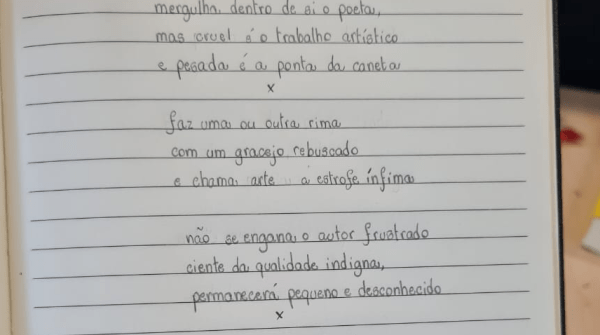 mergulha dentro de si o poeta,
mas cruel é o trabalho artístico
e pesada é a ponta da caneta
x
faz uma ou outra rima
com um gracejo rebuscado
e chama arte a estrofe ínfima
não se engana o autor frustrado
ciente da qualidade indigna,
permanecerá pequeno e desconhecido
x